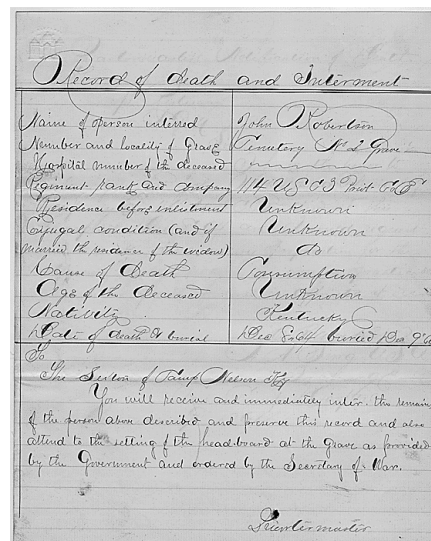 Record of death and Interment
Name of person interred John Robertson
Number and locality of Grave Cemetery No 2 Grave
Hospital number of the deceased
Regiment rank and company 114 USC3 Co E
Residence before enlistment Unknown
Conjugal condition (and if Unknown
married the residence of the widow) do
Cause of death Consumption
Age of the deceased Unknown
Nativity Kentucky
Date of death & burial Dec buried Dec 9
To
The Sexton of Camp Nelson Ky
You will receive and immediately inter the remain
of the person above described and preserve this record and also
attend to the setting of the head-board at the Grave as provided
by the Government and ordered by the Secretary of War.
Quartermaster